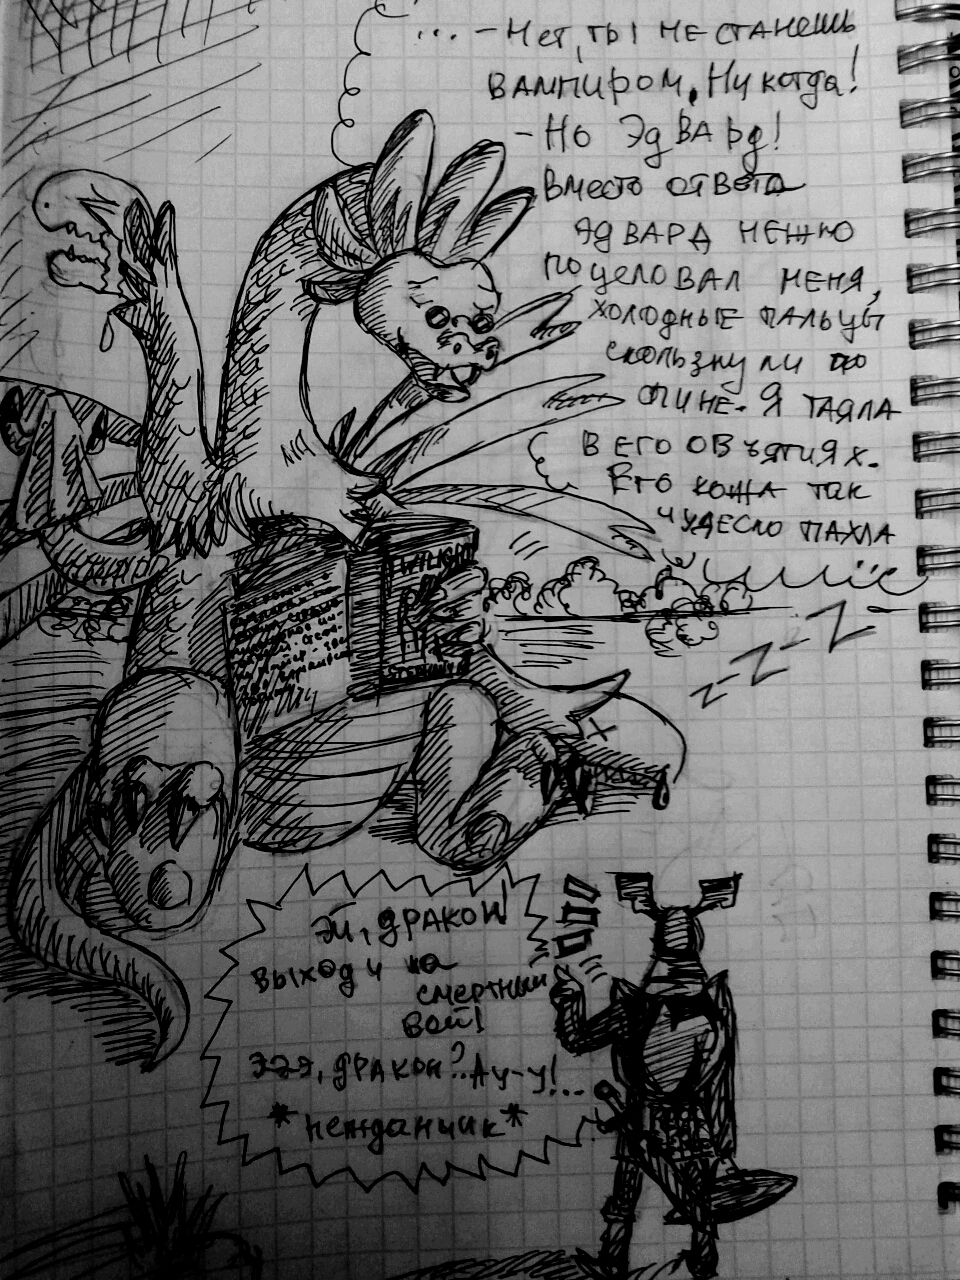 ... - Нет, ты не станешь
вампиром. Никогда!
- Но Эдвард!
Вместо ответа
Эдвард нежно
поцеловал меня,
холодные пальцы
скользнули по
спине. Я таяла
в его объятиях.
Его кожа так
чудесно пахла
TWILIGHT
z z z
Эй, дракон!
выходи на
смертный
бой!
Ээя, дракон?.. Ау-у!...
*нежданчик*